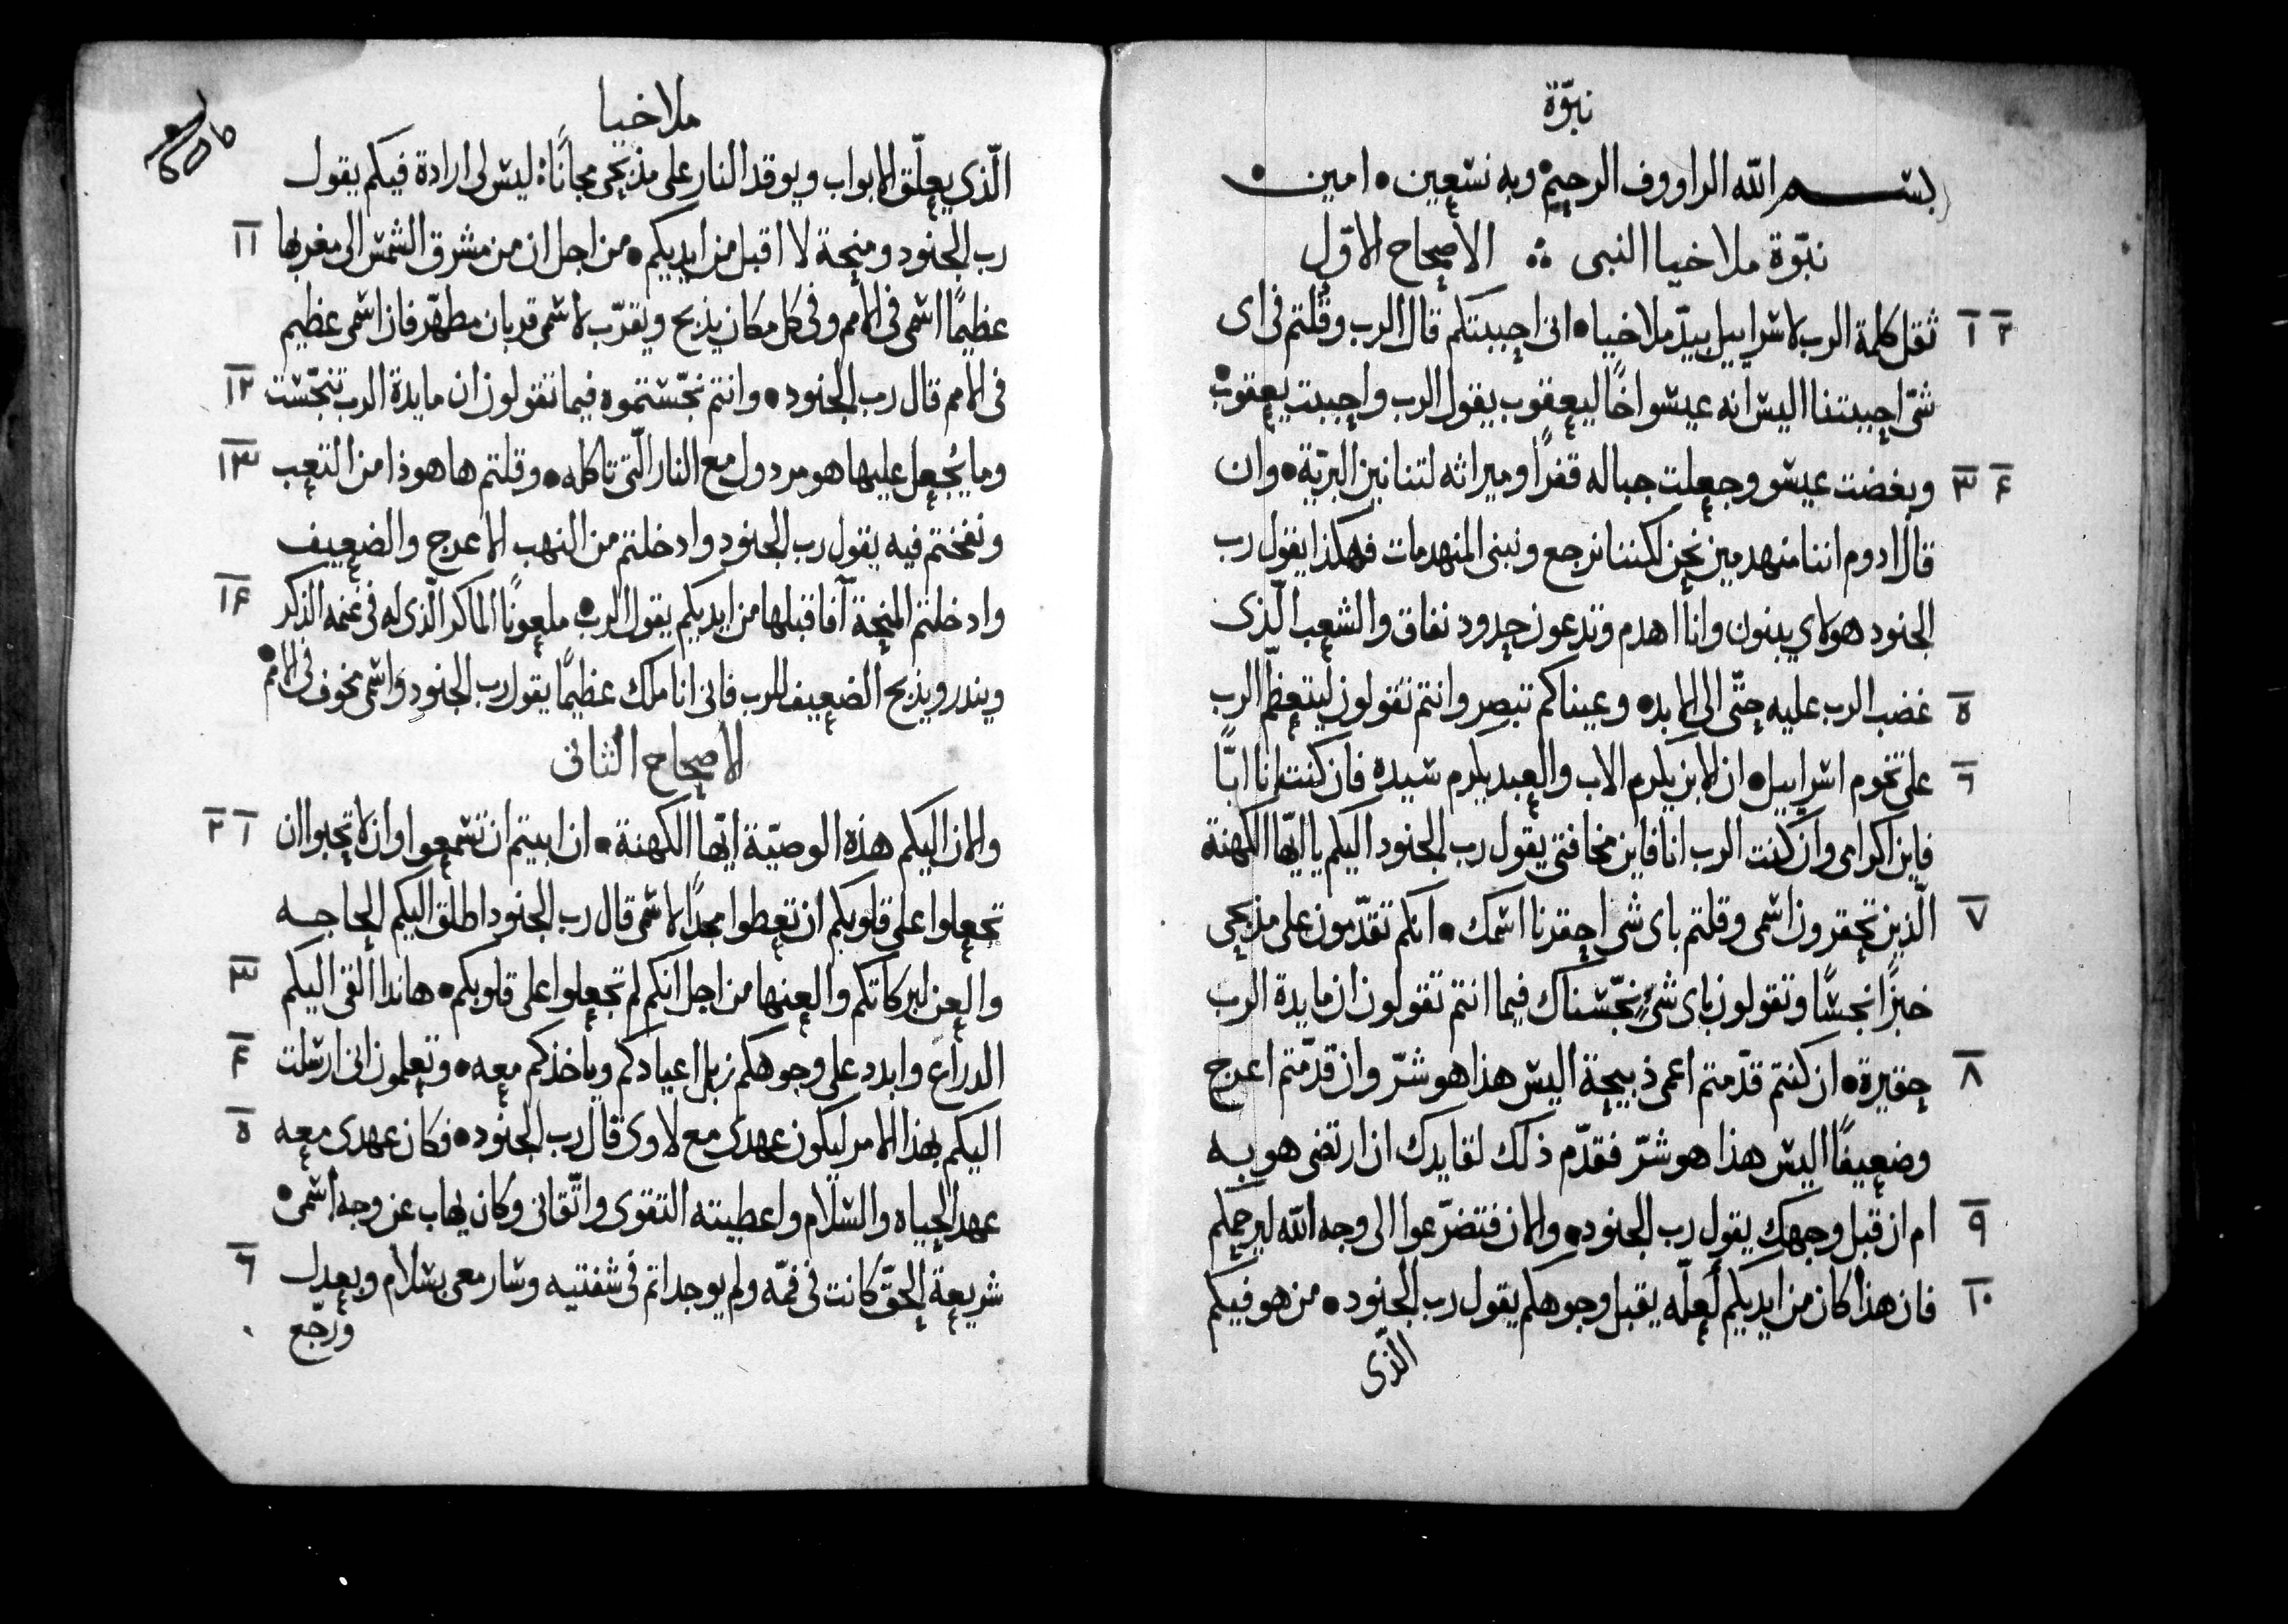 نبوّة
بسم الله الراووف الرحيم وبه نستعين • امين •
نبّوة ملاخيا النبى ∴ الاصحاح الاوّل
١ ٢ ثقل كلمة الرب لاسراييل بيدّ ملاخيا • انى احببتكم قال الرب وقلتم فى اى
شى احببتنا اليس انه عيسو اخًا ليعقوب يقول الرب واحببت يعقوب •
٣ ٤ وبغضت عيسو وجعلت جباله قفرًا وميراثه لتنانين البرّية • وان
قال ادوم اننا منهدمين نحن لكننا نرجع ونبنى المنهدمات فهكذا يقول رب
الجنود هولاى يبنون وانا اهدم وتدعون حدود نفاق والشعب الّذى
٥ غضب الرب عليه حتّى الى الابد • وعيناكم تبصر وانتم تقولون ليتعظّم الرب
٦ على تخوم اسراييل • ان الابن يكرم الاب والعبد يكرم سيده فان كنت انا ابًّا
فاين اكرامى وان كنت الرب انا فاين مخافتى يقول رب الجنود اليكم يا ايّها الكهنة
٧ الّذين تحقرون اسمى وقلتم باى شى احقرنا اسمك • انكم تقدّمون على مذبحى
خبزًا نجسًا وتقولون باى شىٍ نجّسناك فيما انتم تقولون ان مايدة الرب
٨ حقيرة • ان كنتم قدّمتم اعمى ذبيحة اليس هذا هو شرّ وان قدّمتم اعرج
وضعيفًا اليس هذا هو شرّ فقدّم ذلك لقايدك ان ارتضى هو به
٩ ام ان قبل وجهك يقول رب الجنود • والان فتضرّعوا الى وجه الله ليرحمكم
١٠ فان هذا كان من ايديكم لعلّه يقبل وجوهكم يقول رب الجنود • من هو فيكم
الّذى
ملاخيا
الّذى يعلّق الابواب ويوقد النار على مذبحى مجانًا ليس لى ارادة فيكم يقول
١١ رب الجنود ومنحة لا اقبل من ايديكم • من اجل ان من مشرق الشمس الى مغربها
عظيمًا اسمى فى الامم وفى كل مكان يذبح ويقرّب لاسمى قربان مطهّر فان اسمى عظيم
١٢ فى الامم قال رب الجنود • وانتم نجّستموه فيما تقولون ان مايدة الرب تنجّست
١٣ وما يُجعل عليها هو مردول مع النار الّتى تاكله • وقلتم ها هوذا من التعب
ونفختم فيه يقول رب الجنود وادخلتم من النهب الاعرج والضعيف
١٤ وادخلتم المنحة آفاقبلها من ايديكم يقول الرب • ملعونًا الماكر الّذى له فى غنمه الذكر
وينذر ويذبح الضعيف للرب فانى انا ملك عظيمًا يقول رب الجنود واسمى مخوف فى الامم •
الاصحاح الثانى
١ ٢ والان اليكم هذه الوصيّة ايّها الكهنة • ان ابيتم ان تسمعوا وان لا تحبوا ان
تجعلوا على قلوبكم ان تعطوا مجدًا لاسمى قال رب الجنود اطلق اليكم الحاجه
٣ والعن لبركاتكم والعنها من اجل انكم لم تجعلوا على قلوبكم • هاندا القى اليكم
٤ الدراع وابدد على وجوهكم زبل اعيادكم وياخذكم معه • وتعلمون انى ارسلت
٥ اليكم بهذا الامر ليكون عهدى مع لاوى قال رب الجنود • فكان عهدى معه
عهد الحياه والسّلام واعطيته التقوى واتّقانى وكان يهاب عن وجه اسمى •
٦ شريعة الحقّ كانت فى فمّه ولم يوجد اثم فى شفتيه وسار معى بسلام وبعدل
ورجّع